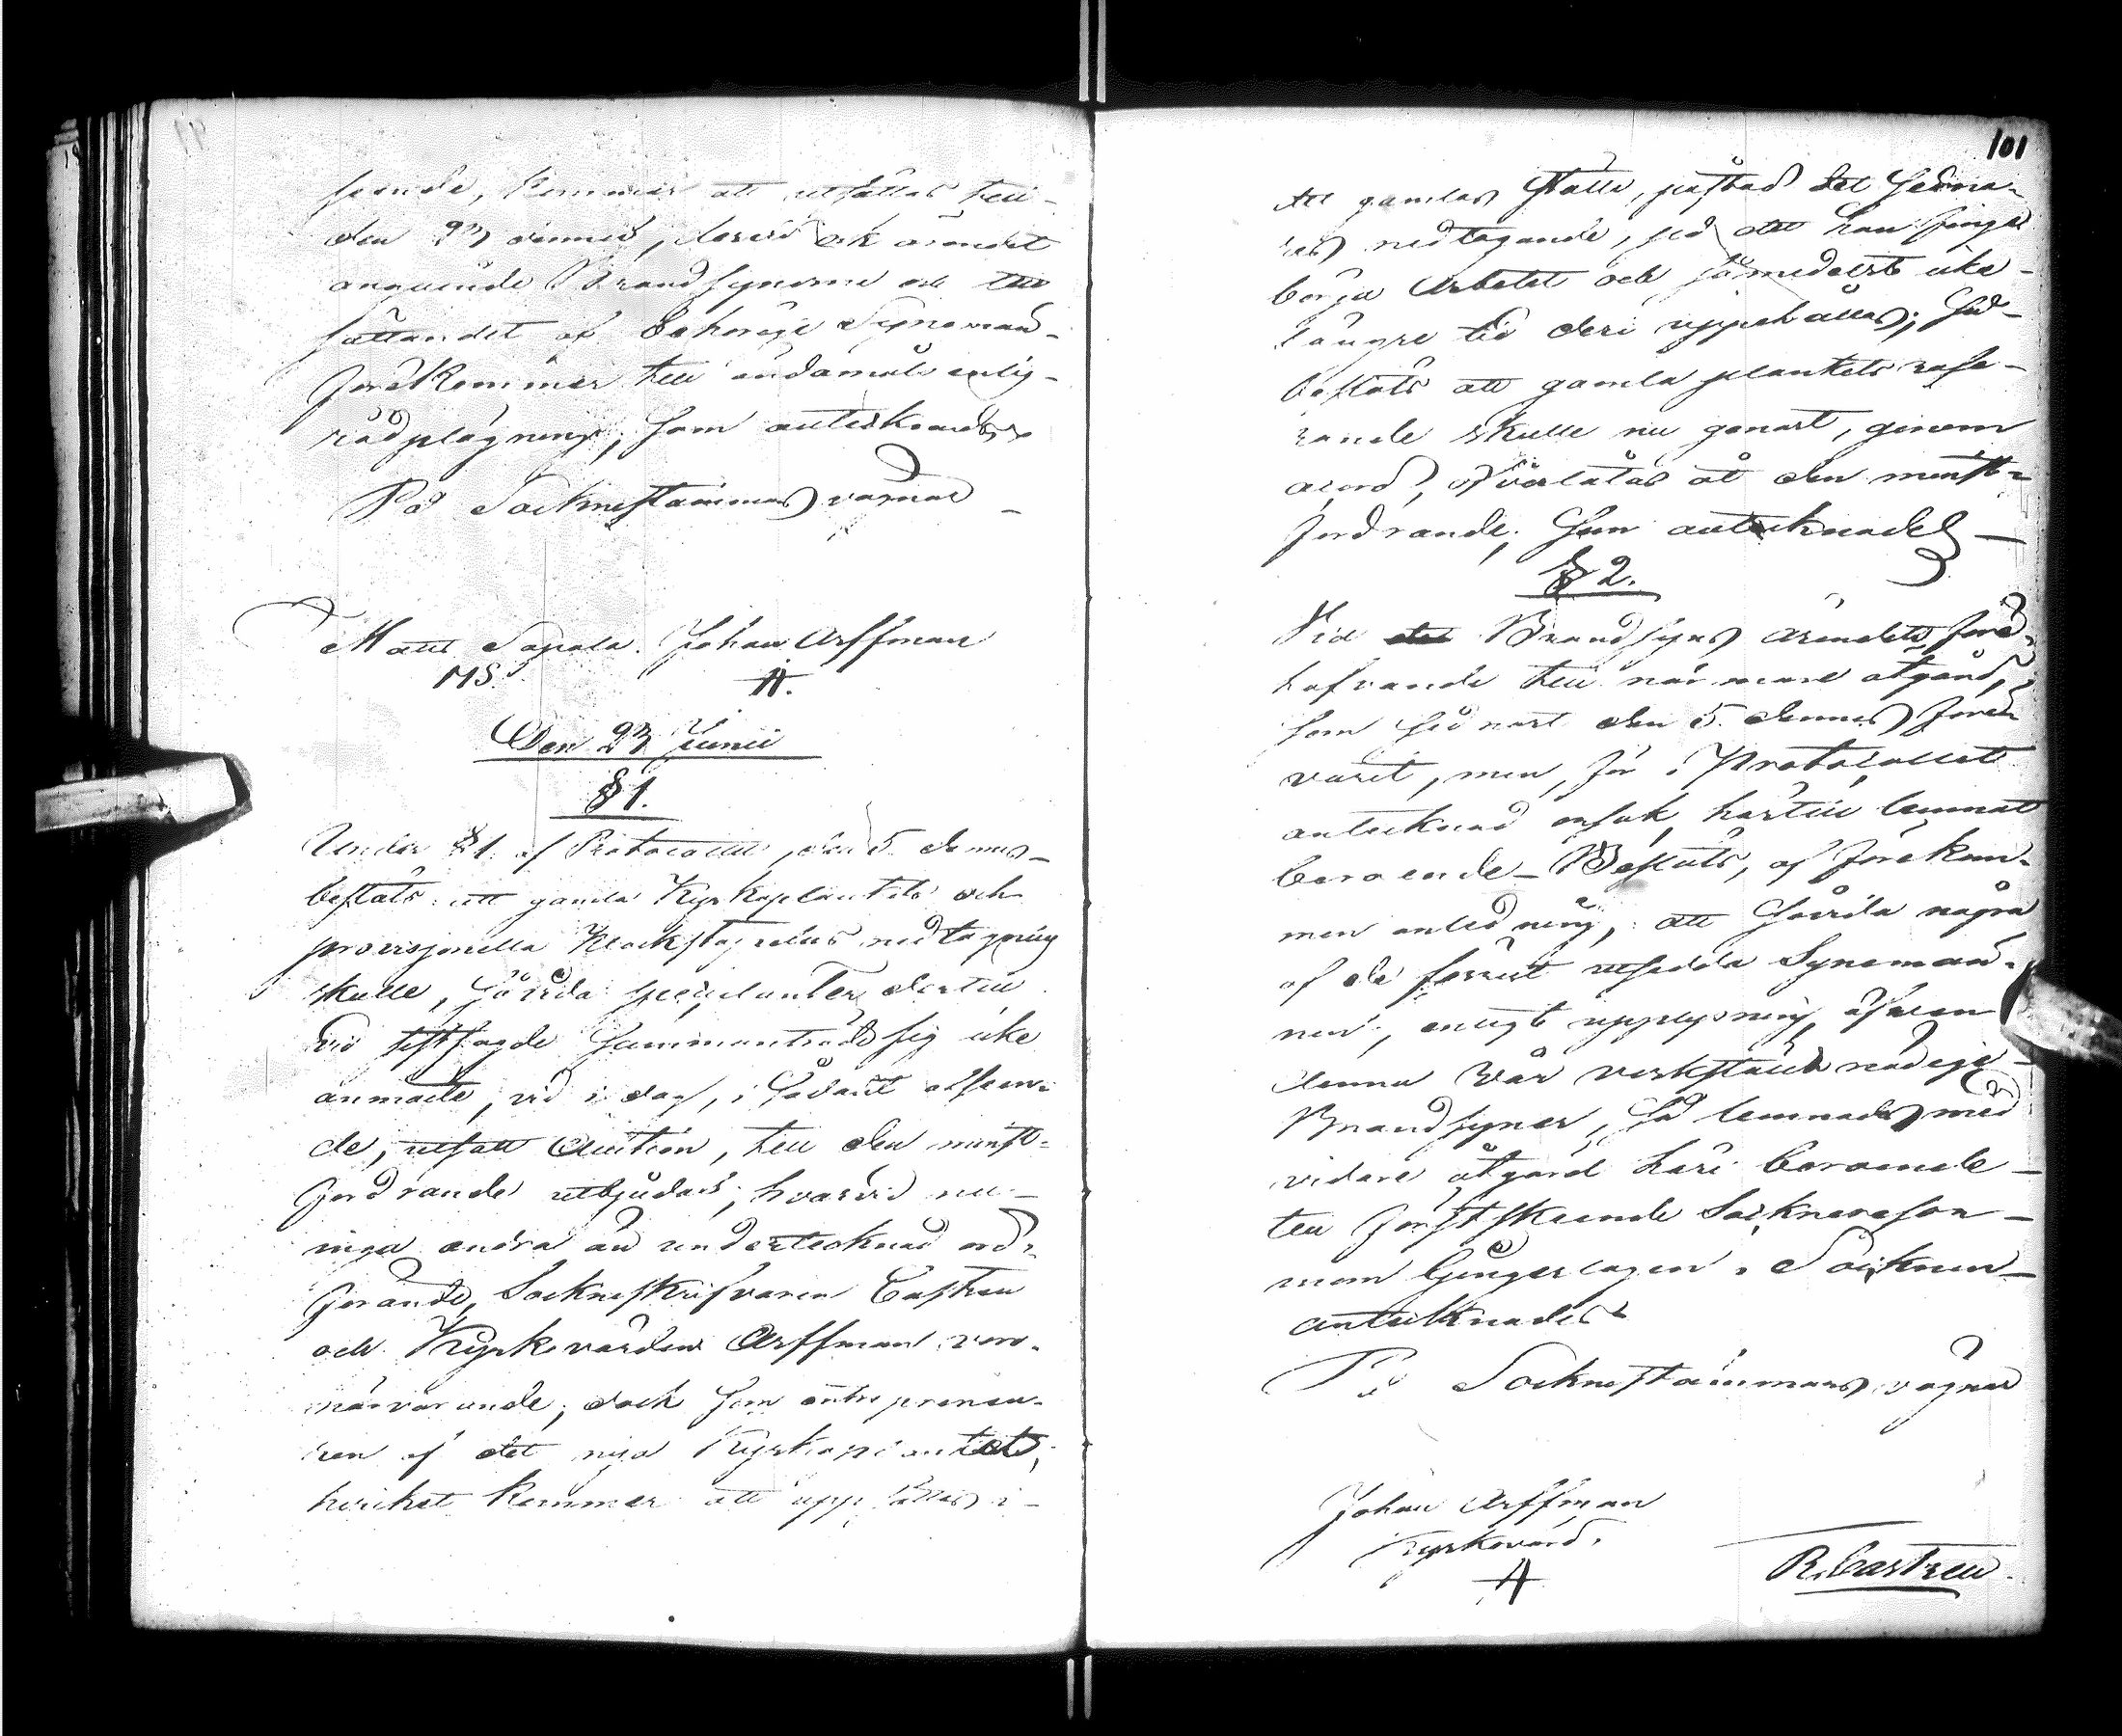 seende, kommer att utsättas till
den 23 dennes, dervid ock ärendet
angående Brandsynerne och till
sättandet af behörige Synemän
förekommer till ändamålsenlig
rådplägning; som antecknades
På Socknestämmans vägnar
Matts Sapala. Johan Arffman
MS. A.
Den 23 Junii
§ 1.
Under § 1. af Protocollet, den 5. dennes
beslöts att gamla Kyrkoplankets och
provisionella Klockstapelns nedtagning
skulle, då spekulanter dertill
vid sistsagde sammanträde sig icke
anmälte, vid i dag, i sådant afseen-
de, utsatt Auction, till den minst-
fordrande utbjudas; hvarvid nu
inga andra än undertecknad ord-
förande, Sockneskrifvaren Castrén
och Kyrkovärden Arffman voro
närvarande; dock som entrepreneu-
ren af det nya Kyrkoplanket,
hvilket kommer att uppsättas i
101
det gamlas ställe, påstod det sedna-
res nedtagande, på det han finge
börja Arbetet och såmedelst icke
längre tid deri uppehållas; så
beslöts att gamla plankets rase-
rande skulle nu genast, genom
acord, öfverlåtas åt den minst-
fordrande; Som antecknades
§ 2.
Vid Brandsyns ärendets före-
hafvande till närmare åtgärd,
som sednast den 5. dennes före-
varit, men, för i Protocollet
antecknad orsak, härtill lemnat
beroende - Beslöts, af förekom-
men anledning, att såvida några
af de förut utsedda Synemän-
nen, enligt upplysning, äfven
denna vår verkställt nödige
Brandsyner, så lemnades med
vidare åtgärd häri beroende
till förstskeende Socknen
antecknades
På Socknestämmans vägnar
Johan Arffman
Kyrkovärd.
A
R. Castrén.